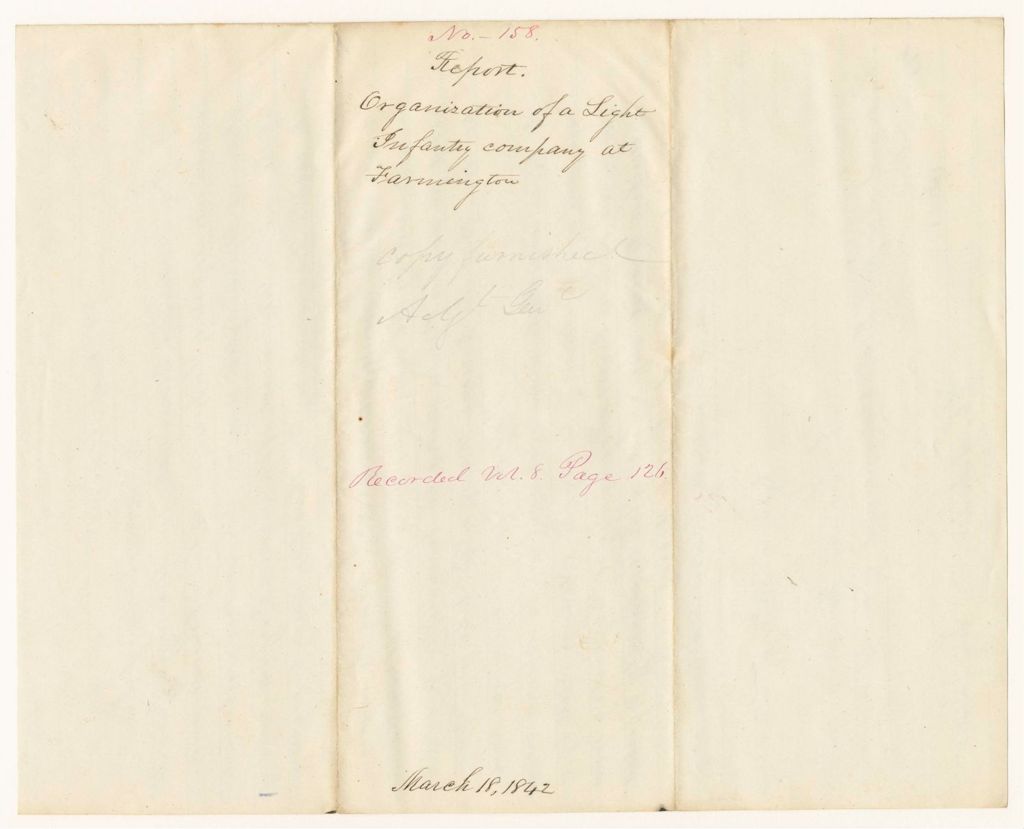 No. - 158.
Report.
Organization of a Light
Infantry company at
Farmington
copy furnished
Adjt Genl
Recorded Vol. 8. Page 126
March 18, 1842